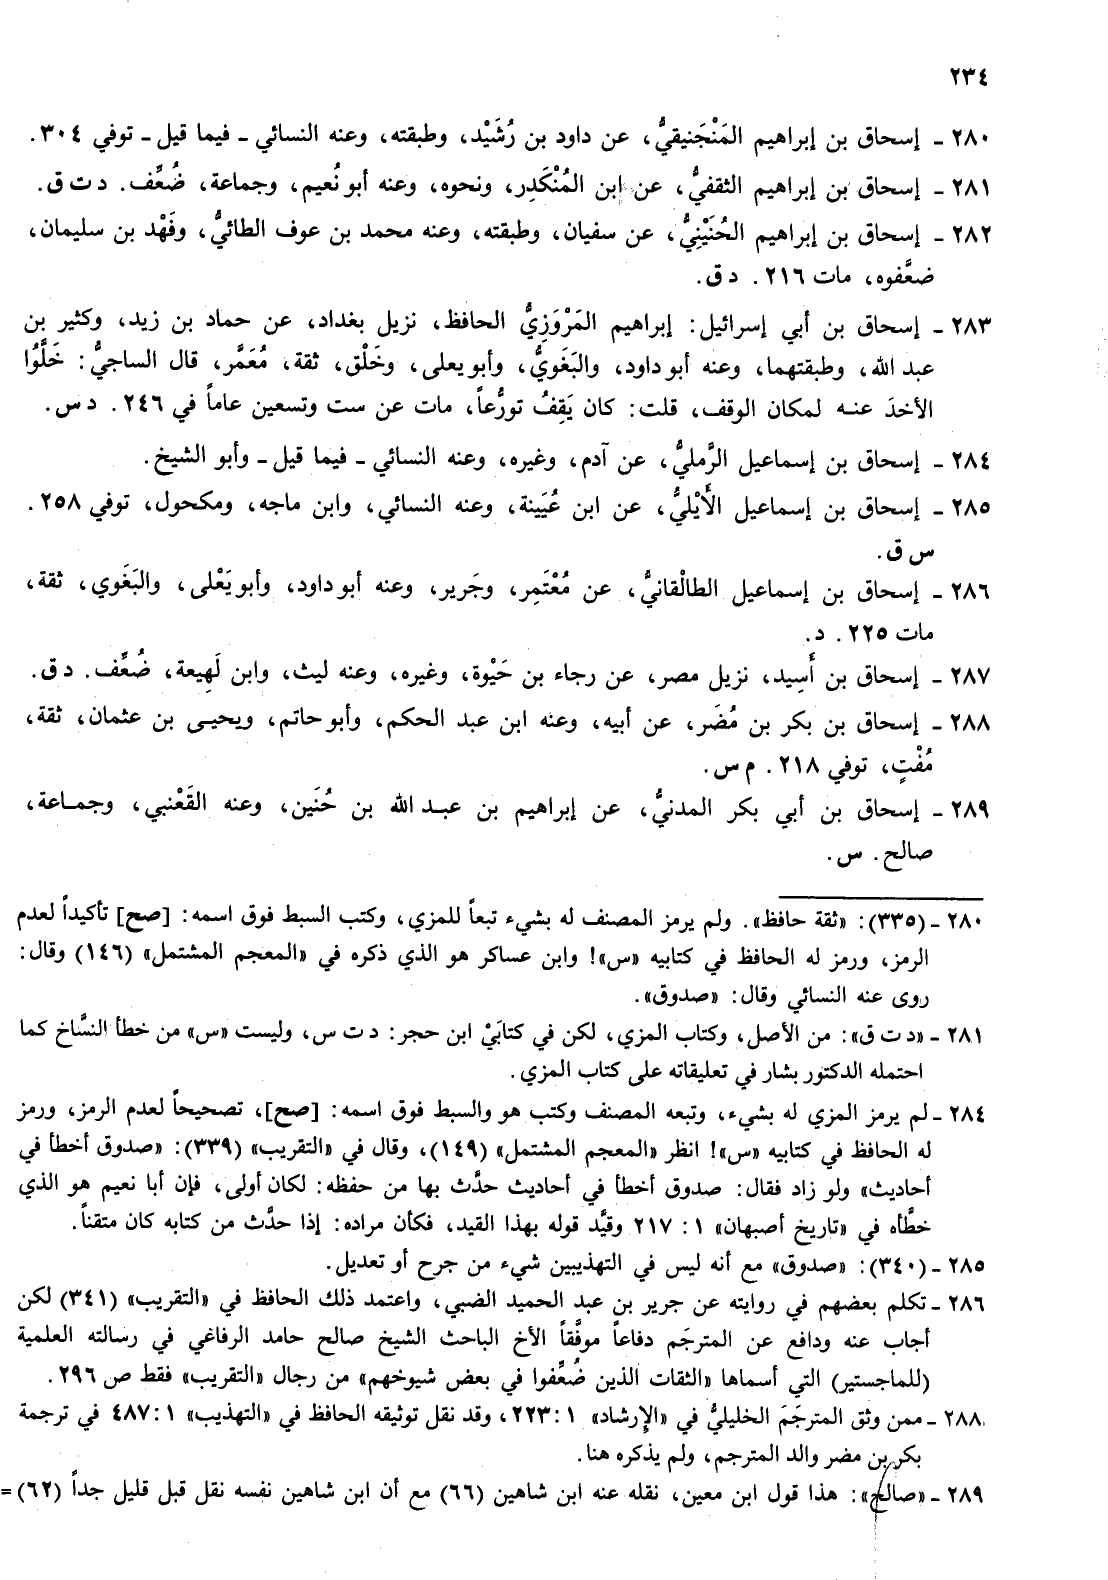 ٢٣٤
٢٨٠ ـ إسحاق بن إبراهيم المَنْجَنيقيُّ، عن داود بن رُشَيْد، وطبقته، وعنه النسائي ـ فيما قيل ـ توفي ٣٠٤.
٢٨١ ـ إسحاق بن إبراهيم الثقفيُّ، عن ابن المُنْكَدِر، ونحوه، وعنه أبو نُعيم، وجماعة، ضُعِّف. د ت ق.
٢٨٢ ـ إسحاق بن إبراهيم الحُنَيْنِيُّ، عن سفيان، وطبقته، وعنه محمد بن عوف الطائيُّ، وفَهْد بن سليمان،
ضعَّفوه، مات ٢١٦. د ق.
٢٨٣ ـ إسحاق بن أبي إسرائيل: إبراهيم المَرْوَزِيُّ الحافظ، نزيل بغداد، عن حماد بن زيد، وكثير بن
عبد الله، وطبقتهما، وعنه أبو داود، والبَغَويُّ، وأبو يعلى، وخَلْق، ثقة، مُعَمَّر، قال الساجيُّ: خَلَّوُا
الأخذَ عنه لمكان الوقف، قلت: كان يَقِفُ تورُّعاً، مات عن ست وتسعين عاماً في ٢٤٦. د س.
٢٨٤ ـ إسحاق بن إسماعيل الرَّمليُّ، عن آدم، وغيره، وعنه النسائي ـ فيما قيل ـ وأبو الشيخ.
٢٨٥ ـ إسحاق بن إسماعيل الأَيْليُّ، عن ابن عُيَينة، وعنه النسائي، وابن ماجه، ومكحول، توفي ٢٥٨.
س ق.
٢٨٦ ـ إسحاق بن إسماعيل الطالْقانيُّ، عن مُعْتَمِر، وجَرير، وعنه أبو داود، وأبو يَعْلى، والبَغَوي، ثقة،
مات ٢٢٥. د.
٢٨٧ ـ إسحاق بن أَسِيد، نزيل مصر، عن رجاء بن حَيْوة، وغيره، وعنه ليث، وابن لَهِيعة، ضُعِّف. د ق.
٢٨٨ ـ إسحاق بن بكر بن مُضَر، عن أبيه، وعنه ابن عبد الحكم، وأبو حاتم، ويحيى بن عثمان، ثقة،
مُفْتٍ، توفي ٢١٨. م س.
٢٨٩ ـ إسحاق بن أبي بكر المدنيُّ، عن إبراهيم بن عبد الله بن حُنَين، وعنه القَعْنبي، وجماعة،
صالح. س.
٢٨٠ ـ (٣٣٥): «ثقة حافظ». ولم يرمز المصنف له بشيء تبعاً للمزي، وكتب السبط فوق اسمه: [صح] تأكيداً لعدم
الرمز، ورمز له الحافظ في كتابيه «س»! وابن عساكر هو الذي ذكره في «المعجم المشتمل» (١٤٦) وقال:
روى عنه النسائي وقال: «صدوق».
٢٨١ ـ «د ت ق»: من الأصل، وكتاب المزي، لكن في كتابَيْ ابن حجر: د ت س، وليست «س» من خطأ النسَّاخ كما
احتمله الدكتور بشار في تعليقاته على كتاب المزي.
٢٨٤ ـ لم يرمز المزي له بشيء، وتبعه المصنف وكتب هو والسبط فوق اسمه: [صح]، تصحيحاً لعدم الرمز، ورمز
له الحافظ في كتابيه «س»! انظر «المعجم المشتمل» (١٤٩)، وقال في «التقريب» (٣٣٩): «صدوق أخطأ في
أحاديث» ولو زاد فقال: صدوق أخطأ في أحاديث حدَّث بها من حفظه: لكان أولى، فإن أبا نعيم هو الذي
خطَّأه في «تاريخ أصبهان» ١: ٢١٧ وقيَّد قوله بهذا القيد، فكأن مراده: إذا حدَّث من كتابه كان متقناً.
٢٨٥ ـ (٣٤٠): «صدوق» مع أنه ليس في التهذيبين شيء من جرح أو تعديل.
٢٨٦ ـ تكلم بعضهم في روايته عن جرير بن عبد الحميد الضبي، واعتمد ذلك الحافظ في «التقريب» (٣٤١) لكن
أجاب عنه ودافع عن المترجَم دفاعاً موفَّقاً الأخ الباحث الشيخ صالح حامد الرفاغي في رسالته العلمية
(للماجستير) التي أسماها «الثقات الذين ضُعِّفوا في بعض شيوخهم» من رجال «التقريب» فقط ص ٢٩٦.
٢٨٨ ـ ممن وثق المترجَمَ الخليليُّ في «الإرشاد» ١: ٢٢٣، وقد نقل توثيقه الحافظ في «التهذيب» ١: ٤٨٧ في ترجمة
بكر بن مضر والد المترجم، ولم يذكره هنا.
٢٨٩ ـ «صالح»: هذا قول ابن معين، نقله عنه ابن شاهين (٦٦) مع أن ابن شاهين نفسه نقل قبل قليل جداً (٦٢) =